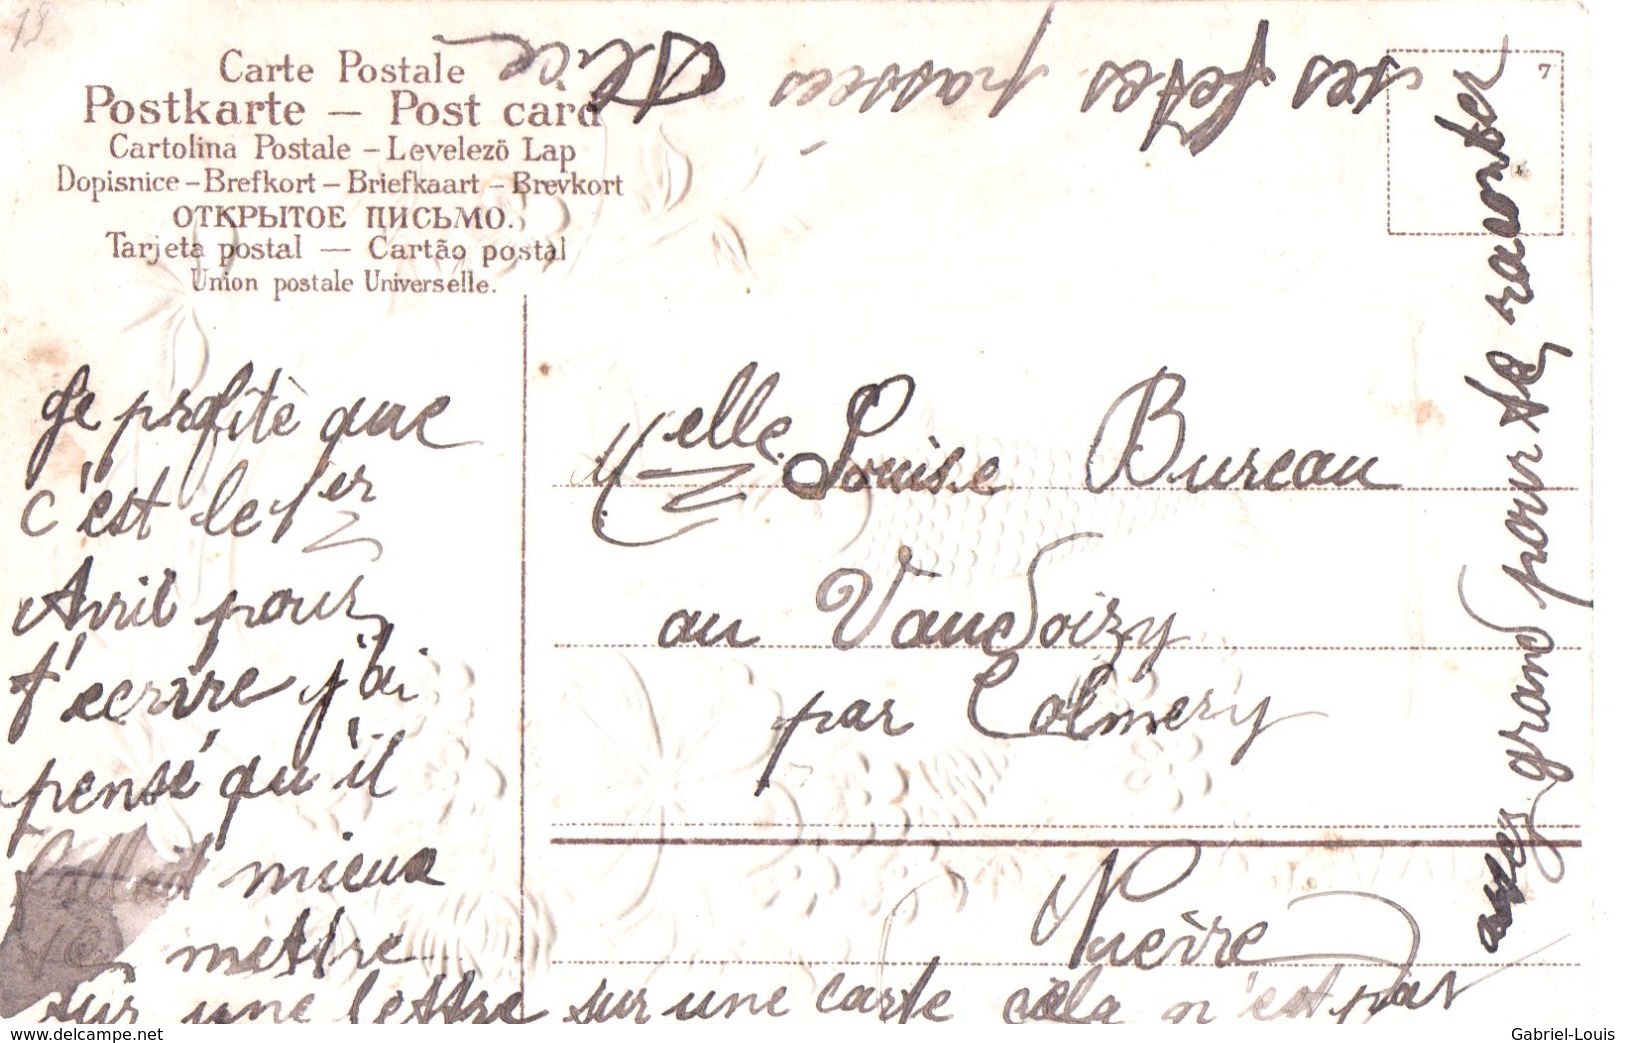 19
Carte Postale
Postkarte — Post card
Cartolina Postale – Levelezö Lap
Dopisnice – Brefkort – Briefkaart – Brevkort
ОТКРЫТОЕ ПИСЬМО.
Tarjeta postal — Cartão postal
Union postale Universelle.
7
Je profite que
c'est le 1er
Avril pour
t'ecrire j'ai
pensé qu'il
fallait mieux
te mettre
sur une lettre sur une carte cela n'est pas
assez grand pour te raconter
les fetes passées
Alice
Melle Louise Bureau
au Vaudoizy
par Colmery
Nievre
www.delcampe.net
Gabriel-Louis